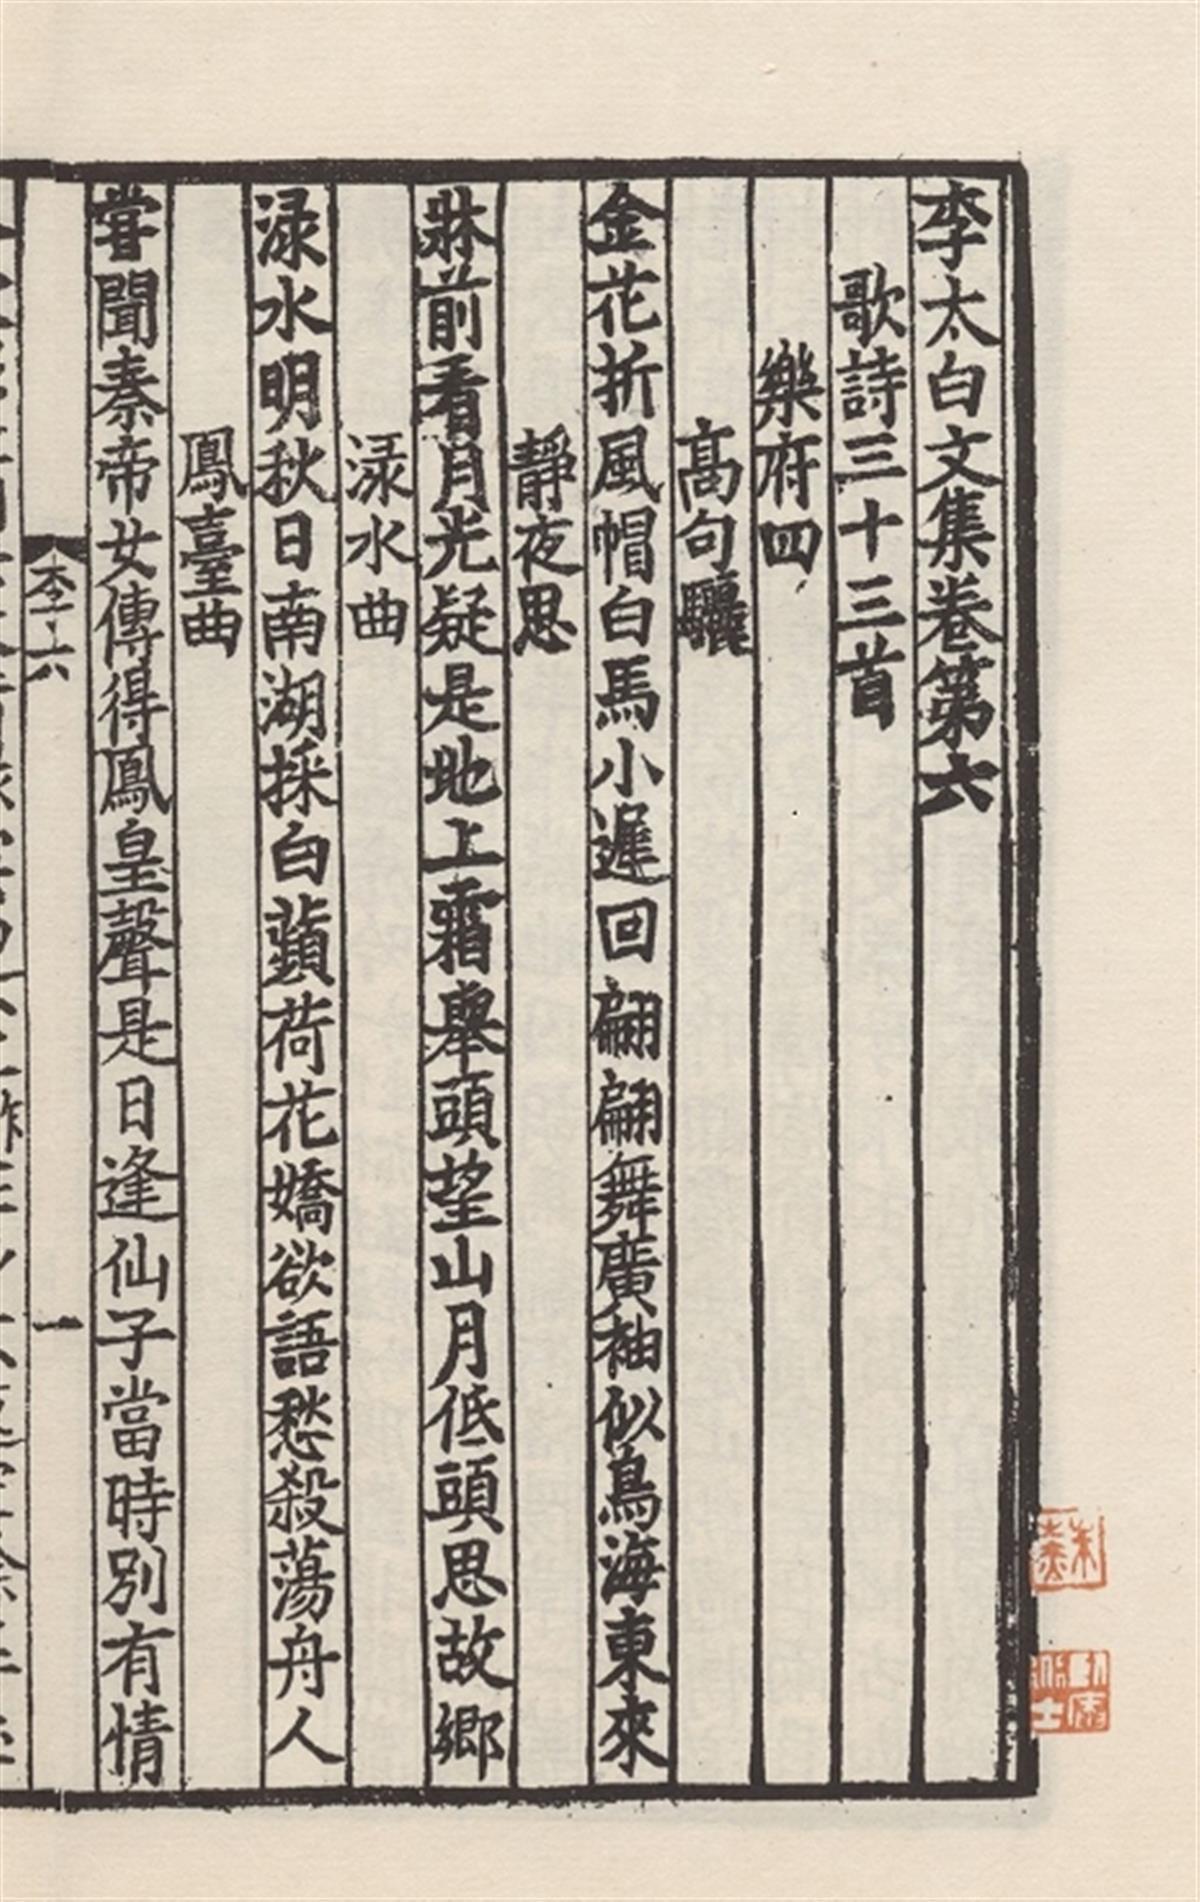 李太白文集卷第六
歌詩三十三首
樂府四
髙句驪
金花折風帽白馬小遲回翩翩舞廣袖似鳥海東來
靜夜思
牀前看月光疑是地上霜舉頭望山月低頭思故鄉
淥水曲
淥水明秋日南湖採白蘋荷花嬌欲語愁殺蕩舟人
鳳臺曲
嘗聞秦帝女傳得鳳皇聲是日逢仙子當時別有情
李六
一